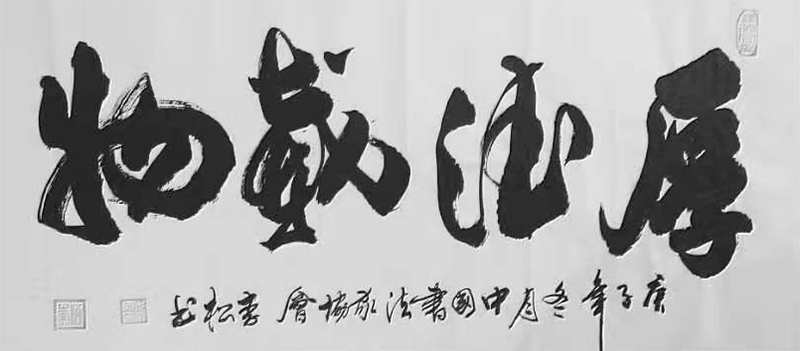 厚德載物
庚子年冬月中國書法家協會李松书